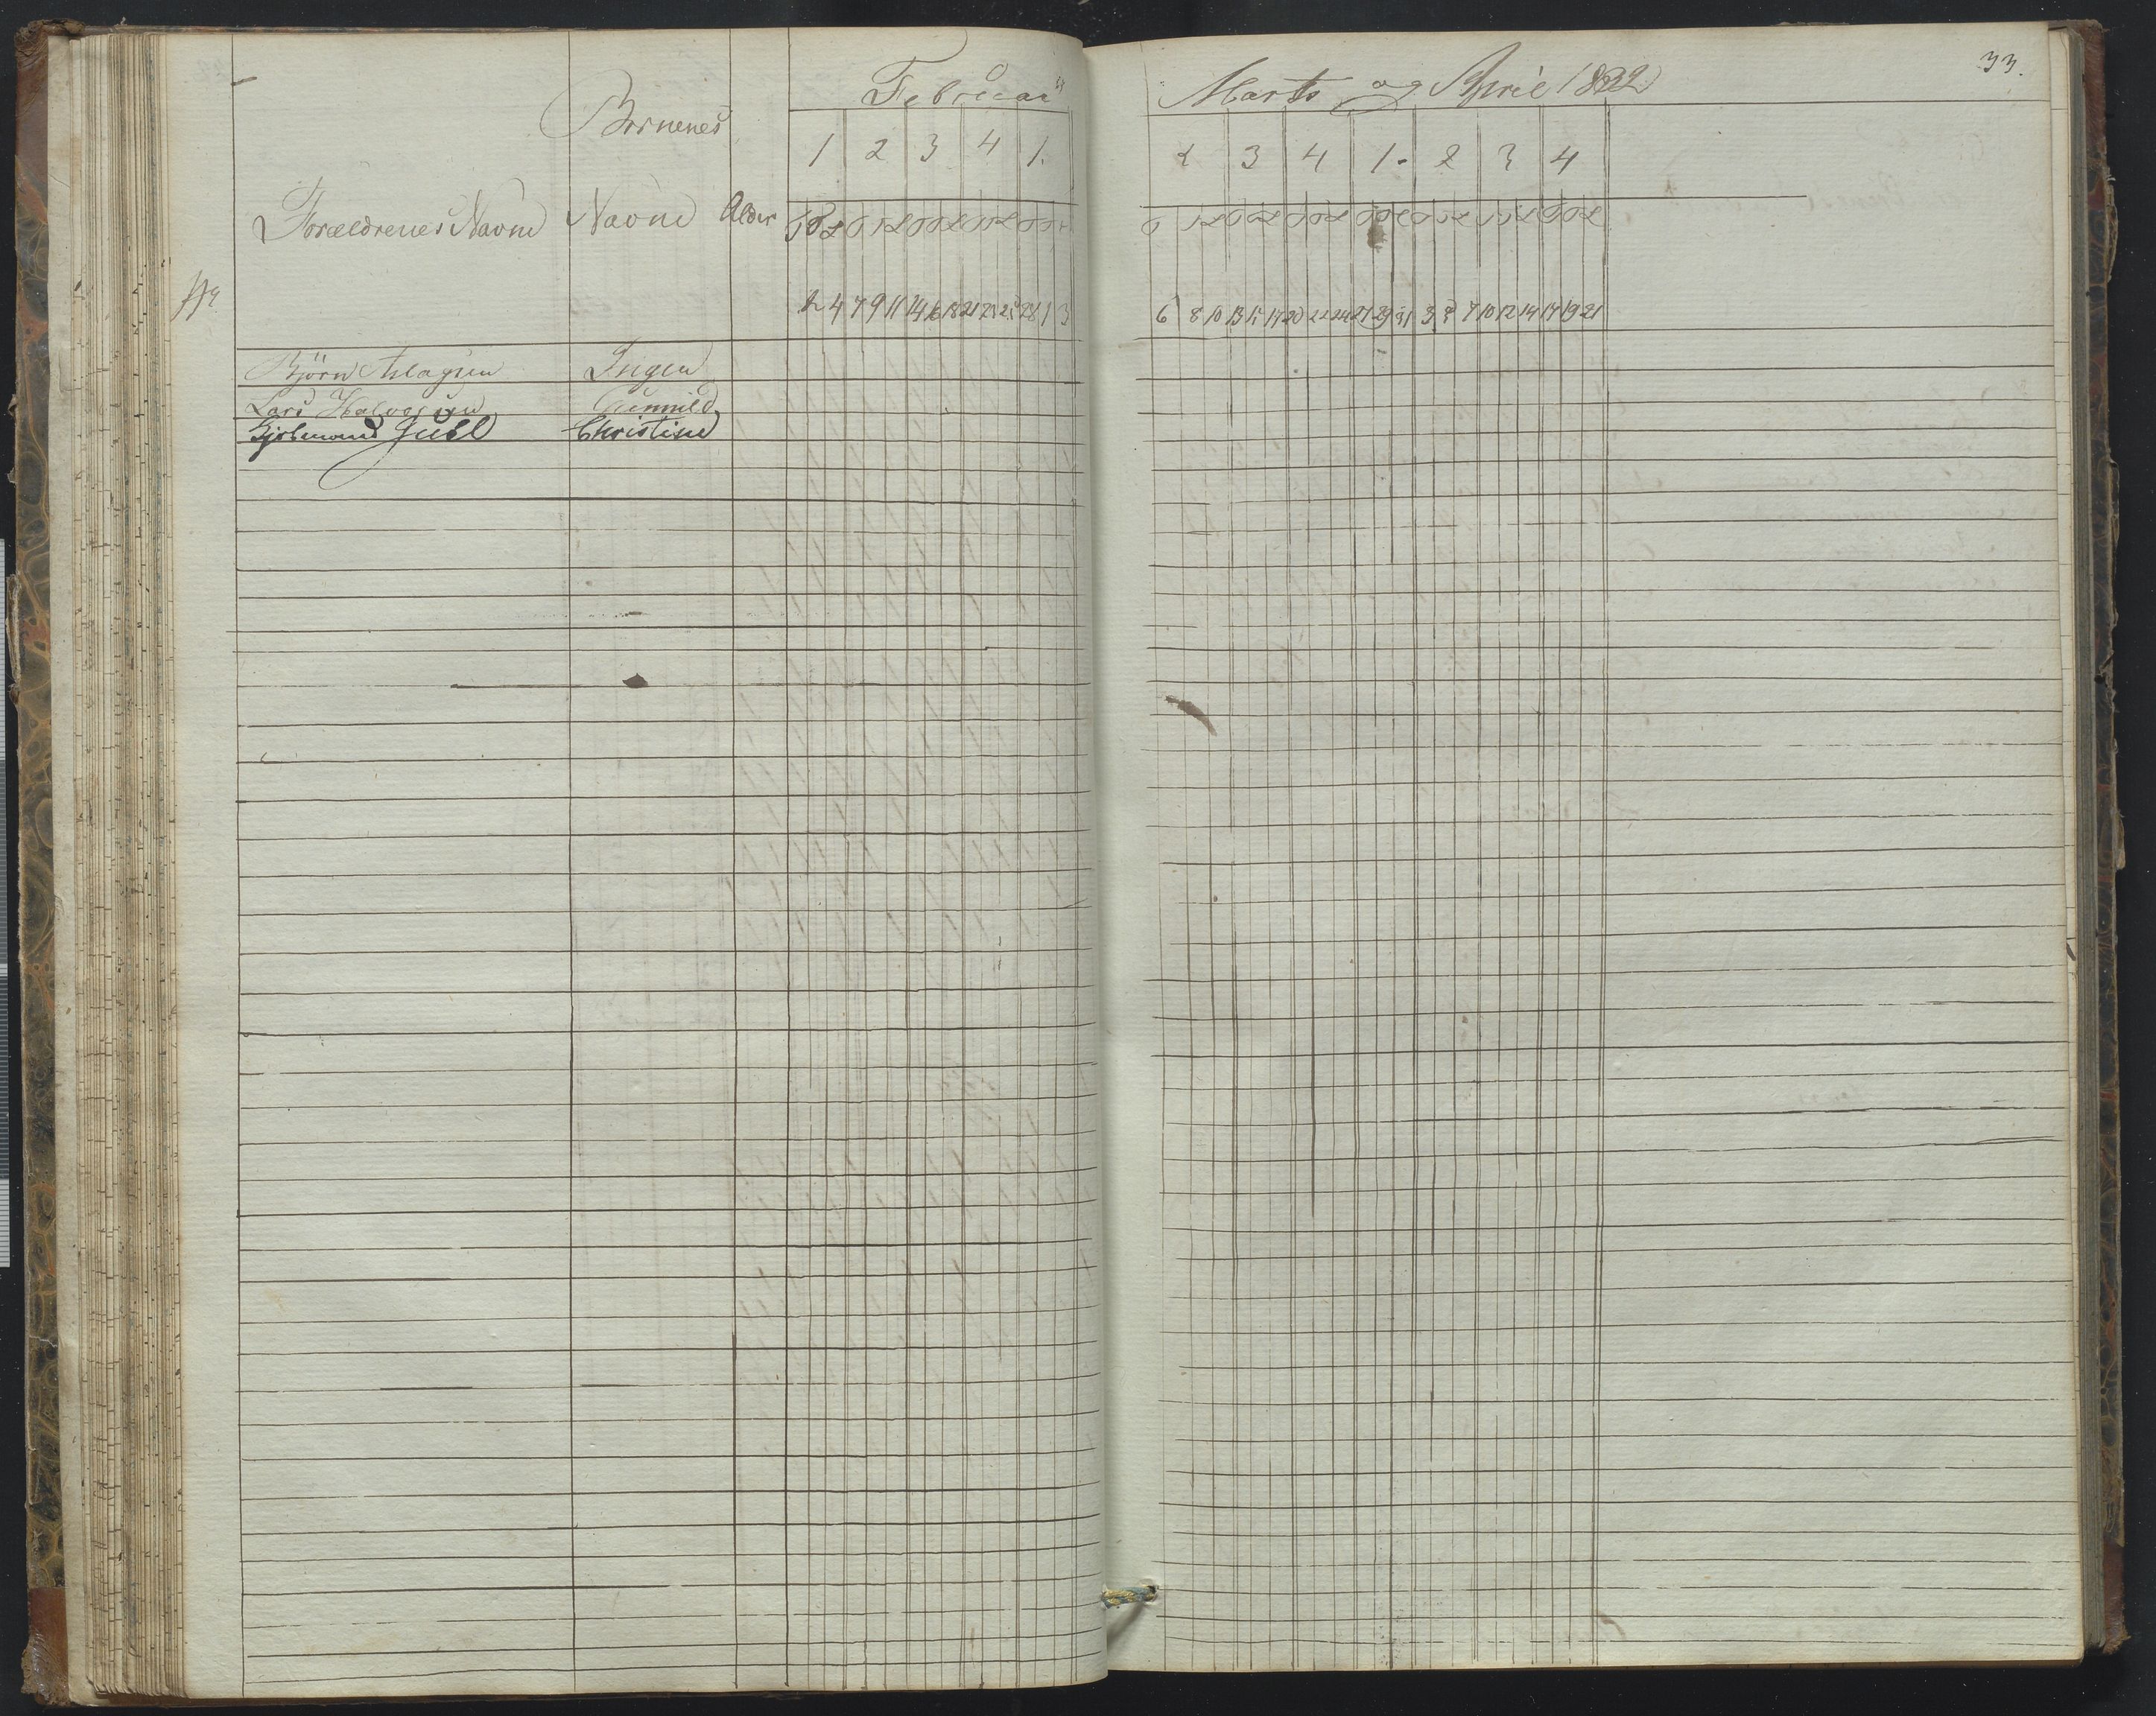 33.
Februar Marts og April 1832
Børnenes
1 2 3 4 1. 2 3 4 1. 2 3 4
Forældrenes Navne Navne Alder
2 4 7 9 11 14 16 18 21 23 25 28 1 3 6 8 10 13 15 17 20 22 24 27 29 31 3 5 7 10 12 14 17 19 21
Björn Aslagsen Ingen
Lars Halvorsen Gunnild
Juel Christine